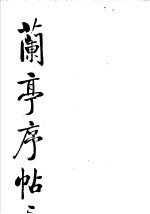 蘭亭序帖